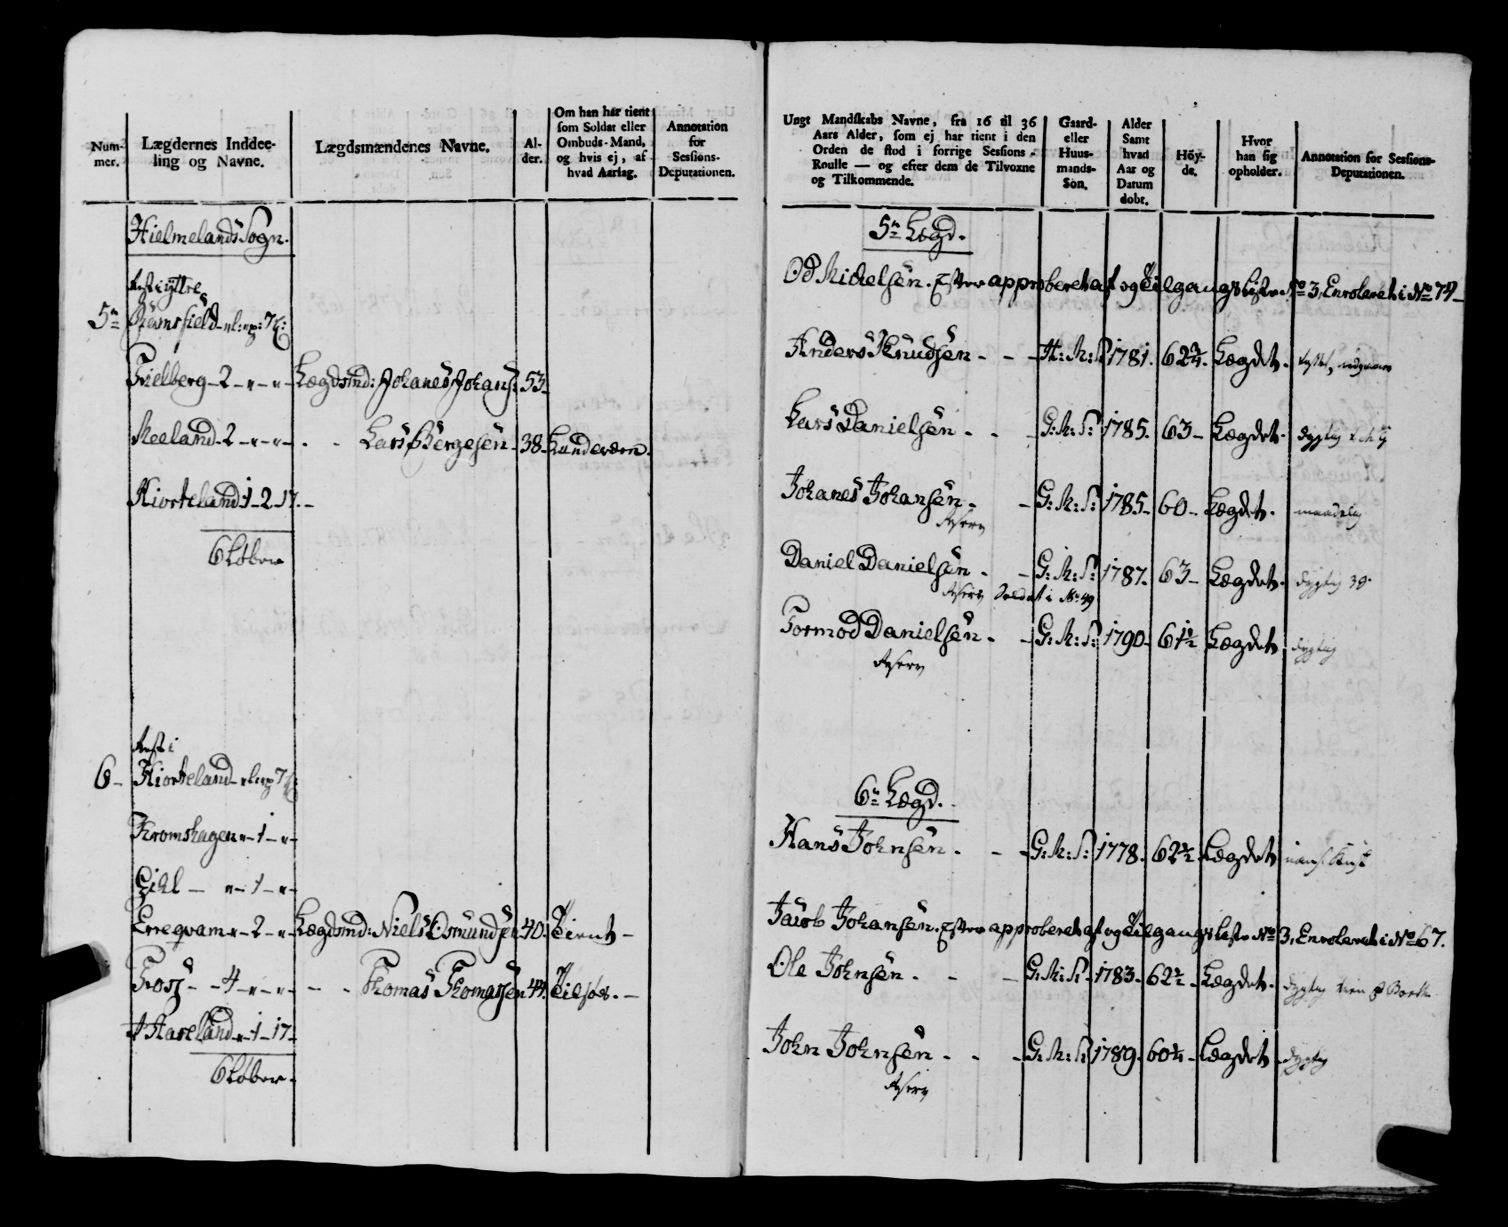 Num-
mer.
Lægdernes Inddee-
ling og Navne.
Lægdsmændenes Navne.
Al-
der.
Om han har tient
som Soldat eller
Ombuds-Mand,
og hvis ej, af
hvad Aarsag.
Annotation
for
Sessions-
Deputationen.
Hielmelands Sogn.
Rest i yttre
5te Ramsfield
Fielberg - 2 - " - " - Lægdsmd: Johanes Johans: 53 -
Meeland - 2 - " - " - Lars Børgesen - 38 -
Hiorteland: 1 - 2 - 17. -
6 Løber
Rest i
6 - Hiorteland
Kromshagen " - 1 - " -
Eikl - " - 1 - " -
Eregvam " - 2 - " - Lægdsmd: Niels Osmundsen 40. Tient -
- 4 - " - " - Thomas Thomassen 44.
- 1 - 17 -
6 Løber -
Ungt Mandskabs Navne, fra 16 til 36
Aars Alder, som ej har tient i den
Orden de stod i forrige Sessions-
Roulle — og efter dem de Tilvoxne
og Tilkommende.
Gaard-
eller
Huus-
mands-
Søn.
Alder
Samt
hvad
Aar og
Datum
døbt.
Höy-
de.
Hvor
han sig
opholder.
Annotation for Sessions-
Deputationen.
5te Lægd.
Od Mickelsen. approberet af og Tilgangs Liste No 3, Enroleret i No 74 -
Anders Knudsen - - - H: M: S: 1781. 62 3/4 - Lægdet.
Lars Danielsen - - - G: M: S: 1785. 63 - Lægdet. dygtig
Johanes Johansen - - G: M: S: 1785 - 60 - Lægdet. maadelig
Reserv
Daniel Danielsen - - G: M: S: 1787. 63 - Lægdet. dygtig
Reserv Soldat i No 49
Tormod Danielsen - - G: M: S: 1790 - 61 1/2 Lægdet dygtig
Reserv
6te Lægd.
Hans Johnsen - - - G: M: S: 1778. Lægdet
Jacob Johansen. approberet af og Tilgangs Liste No 3, Enroleret i No 67.
Ole Johnsen - - - G: M: S: 1783. Lægdet. dygtig
John Johnsen - - - G: M: S: 1789. Lægdet - dygtig
Reserv